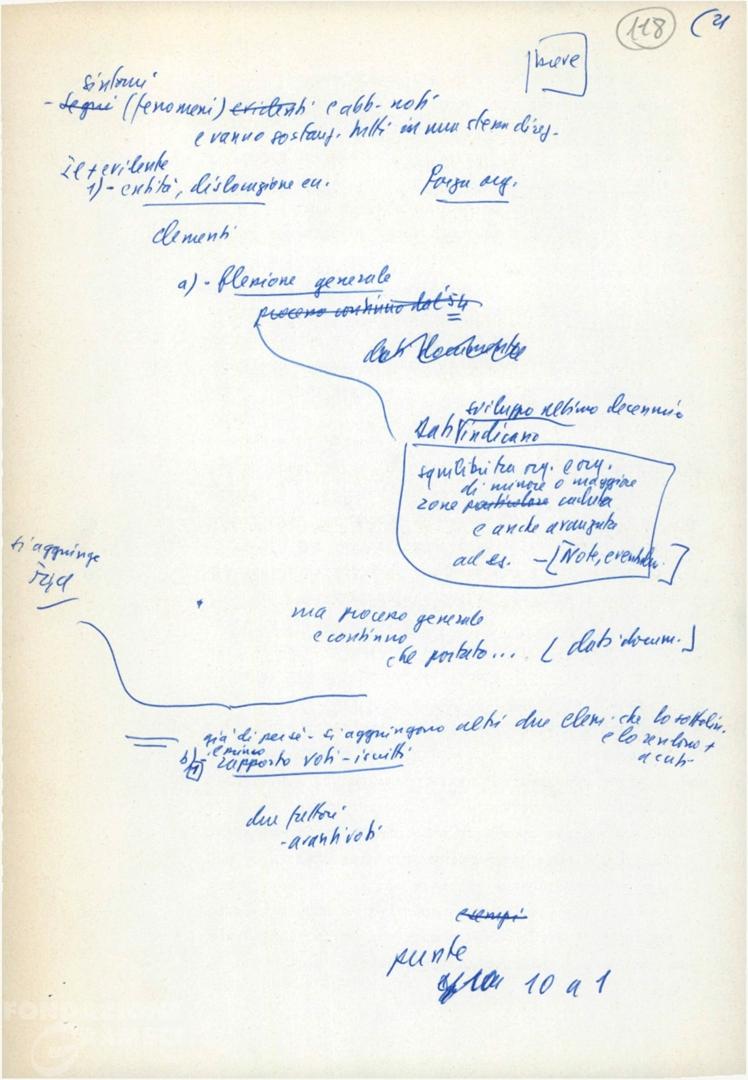 118
(21
breve
sintomi
- segni (fenomeni) evidenti e abb. noti
e vanno sostanz. tutti in una stessa direz.
Il + evidente
1) - entità, dislocazione ecc.
Forza org.
elementi
a) - flessione generale
processo continuo dal '54
dati documento
sviluppo ultimo decennio
Dati indicano
squilibri tra org. e org.
di minore o maggiore
zone particolare caduta
e anche avanzata
ad es. - [Note, eventualm.]
si aggiunge
FGCI
ma processo generale
e continuo
che portato... [dati docum.]
già di per sè - si aggiungono altri due elem. che lo sottolin.
e lo rendono +
acuti
il primo
b) - rapporto voti - iscritti
11
due fattori
- avanti voti
esempi
punte
10 a 1
FONDAZIONE
GRAMSCI